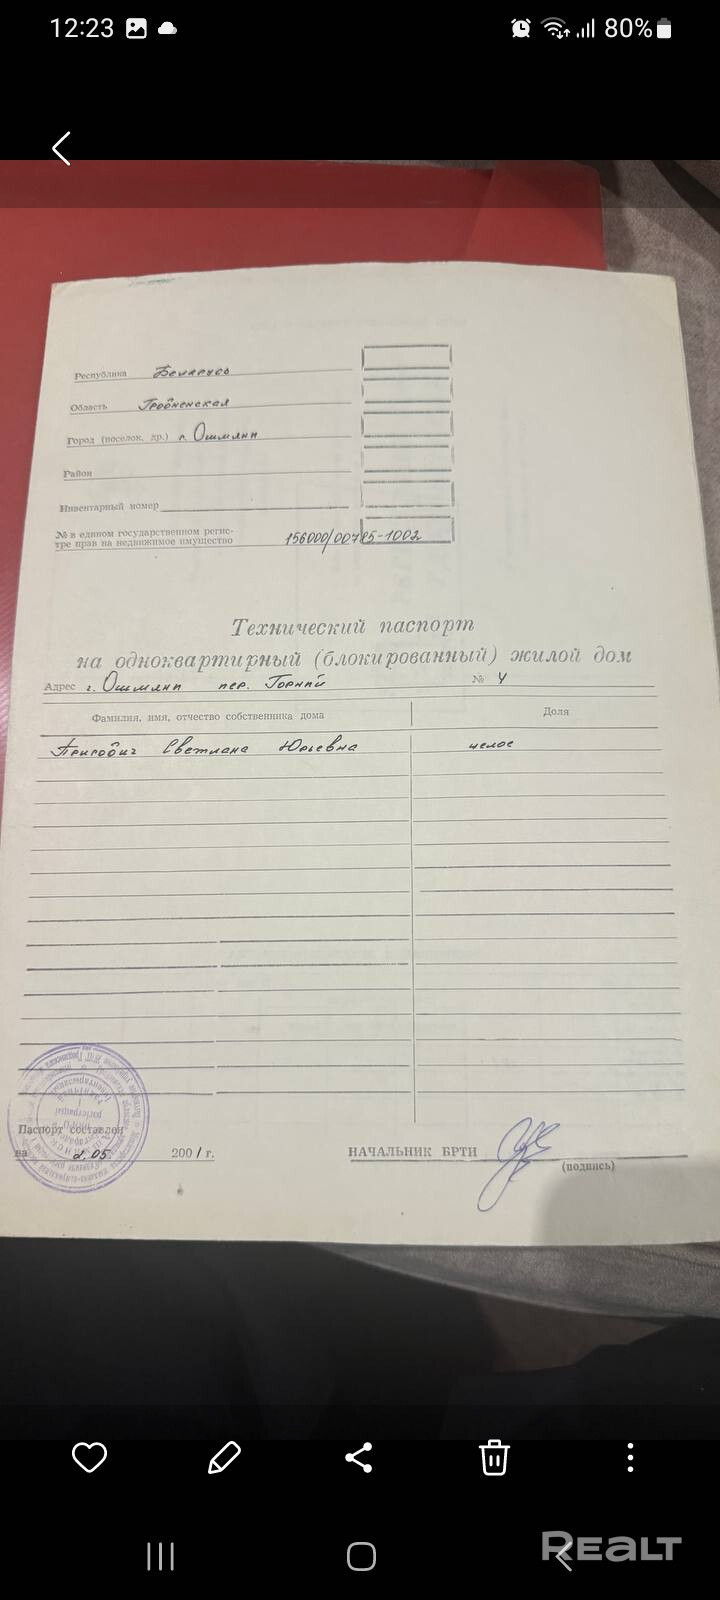 12:23
80%
Республика Беларусь
Область Гродненская
Город (поселок, др.) г. Ошмяны
Район
Инвентарный номер
№ в едином государственном регис-
тре прав на недвижимое имущество 156000/00785-1002
Технический паспорт
на одноквартирный (блокированный) жилой дом
Адрес г. Ошмяны пер. Горный № 4
Фамилия, имя, отчество собственника дома Доля
Светлана Юрьевна целое
Паспорт составлен
на 2.05 2001 г.
НАЧАЛЬНИК БРТИ
(подпись)
REALT